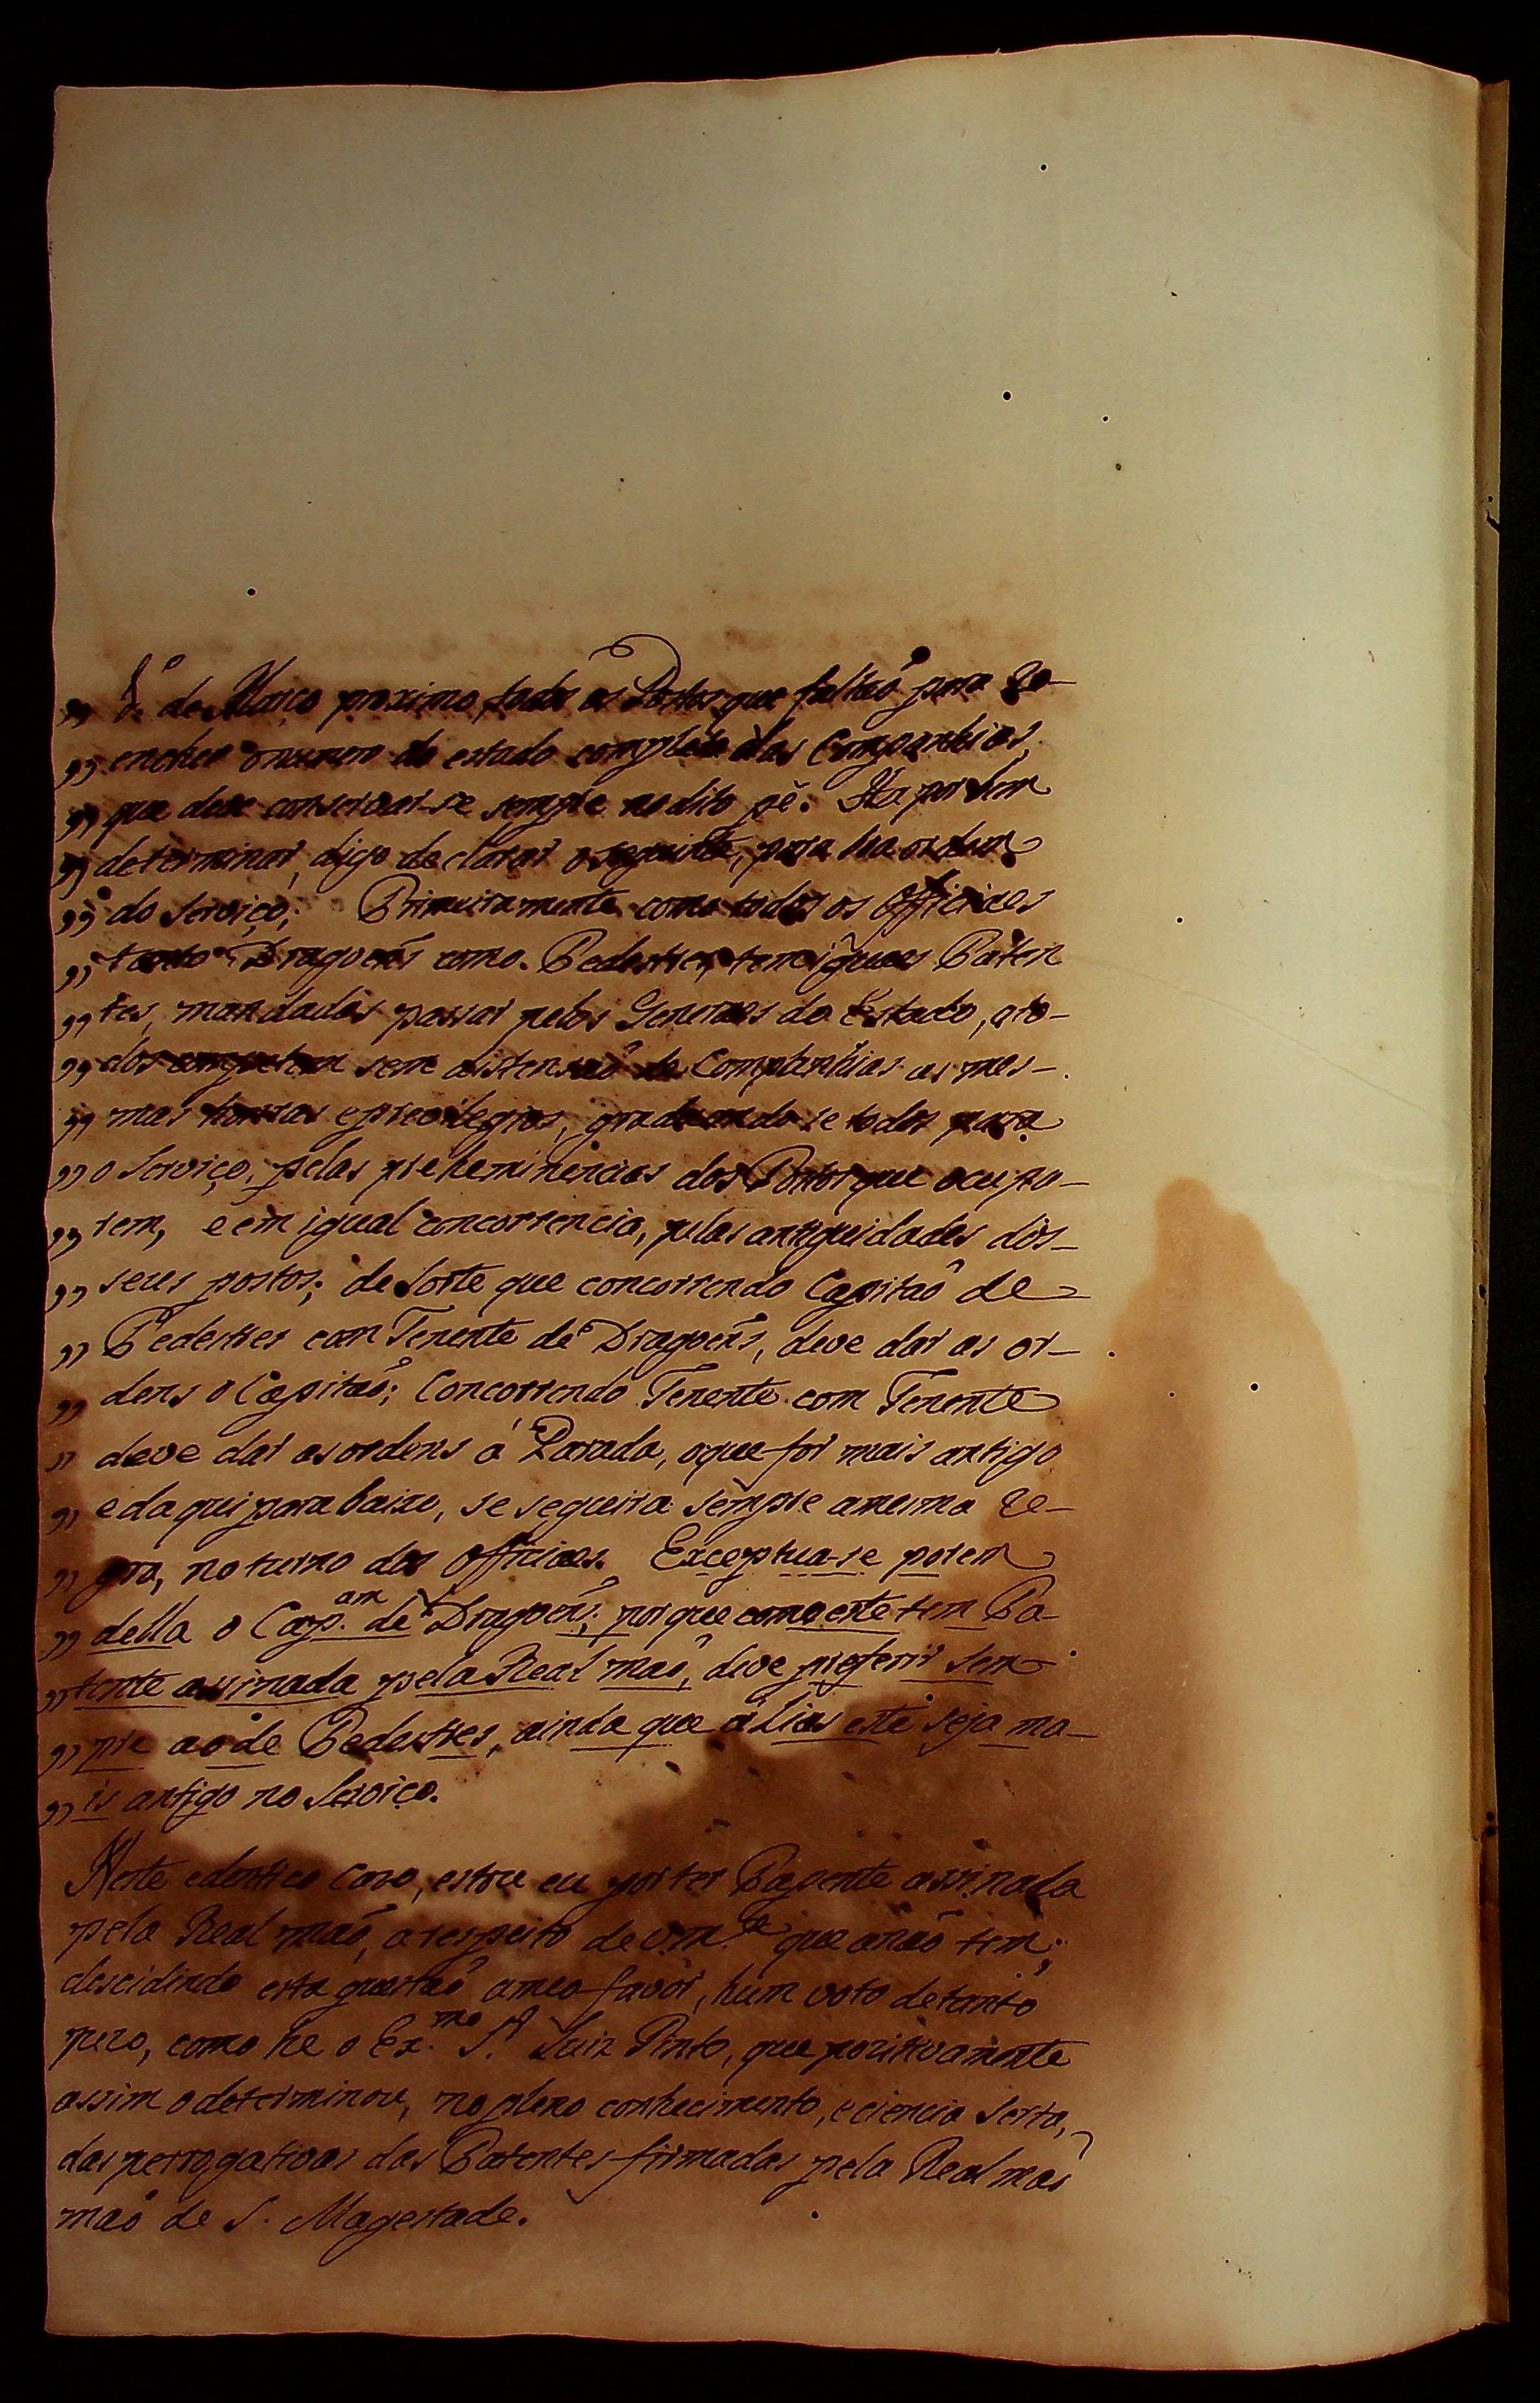 „ 1.º de Março proximo, todos os Postos que faltaõ para Re-
„ encher o numero do estado completo das Companhias,
„ que deve conservar-se sempre no dito pé. Ha por bem
„ determinar, digo declarar o seguinte, para ha ordem
„ do Serviço; Primeiramente como todos os Officiaes
„ tanto Dragoens como Pedestres, tem iguaes Paten
„ tes, mandadas passar pelos Generaes do Estado, ato-
„ dos sem distensaõ de Companhias as mes-
„ mas honras eprevilegios, graduando se todos para
„ o Serviço, pelas preheminencias dos Postos que ocupa-
„ rem, e em igual concorrencia, pelas antiguidades dos
„ seus postos; de Sorte que concorrendo Capitaõ de
„ Pedestres com Tenente de Dragoens, deve dar as or-
„ dens o Capitaõ; Concorrendo Tenente com Tenente
„ deve dar as ordens á Parada, oque for mais antigo
„ e daqui para baixo, se seguira sempre amesma Re-
„ gra, no turno dos Officiaes. Exceptua-se porem
„ della o Cap.am de Dragoens, porque como este tem Pa-
„ tente assinada pela Real maõ, deve preferir sem
„ pre ao de Pedestres, ainda que álias este seja ma-
„ is antigo no Serviço.
Neste edentico Cazo, estou eu por ter Papente assinada
pela Real maõ, a respeito de vm.ce que anaõ tem;
descidindo esta questaõ ameo favor, hum voto detanto
pezo, como he o Ex.mo S.r Luiz Pinto, que pozitivamente
assim odeterminou, no pleno conhecimento, eciencia Serta,
das perrogativas das Patentes firmadas pela Real maõ
maõ de S. Magestade.